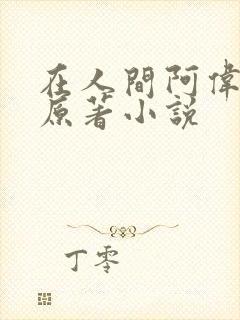 在人間阿偉
原著小説
丁零